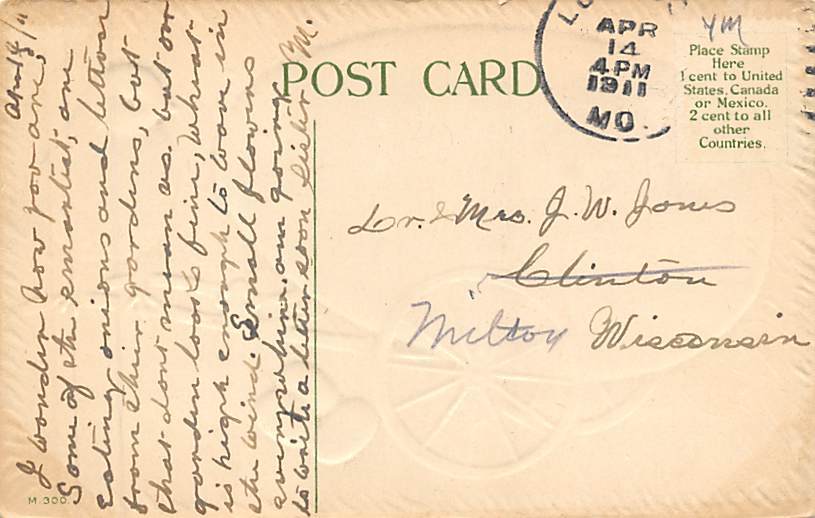 April 14/11
I wonder how you are.
Some of the smartest, are
eating onions and lettuce
from their gardens, but
that dont mean us. but our
garden looks fine, wheat
is high enough to wave in
the wind. Small flowers
everywhere. am going
to write a letter soon Sister M.
POST CARD
APR
14
4 PM
1911
MO.
Place Stamp
Here
1 cent to United
States, Canada
or Mexico.
2 cent to all
other
Countries.
Dr. & Mrs. J. W. Jones
Clinton
Milton Wisconsin
M. 300.